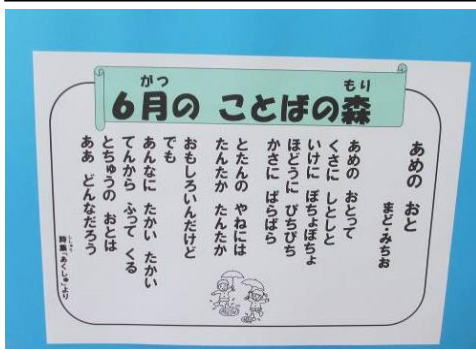 がつ もり
6月の ことばの森
あめの おと
まど・みちお
あめの おとって
くさに しとしと
いけに ぽちょぽちょ
ほどうに ぴちぴち
かさに ぱらぱら
とたんの やねには
たんたか たんたか
おもしろいんだけど
でも
あんなに たかい たかい
てんから ふって くる
とちゅうの おとは
ああ どんなだろう
ししゅう
詩集「あくしゅ」より